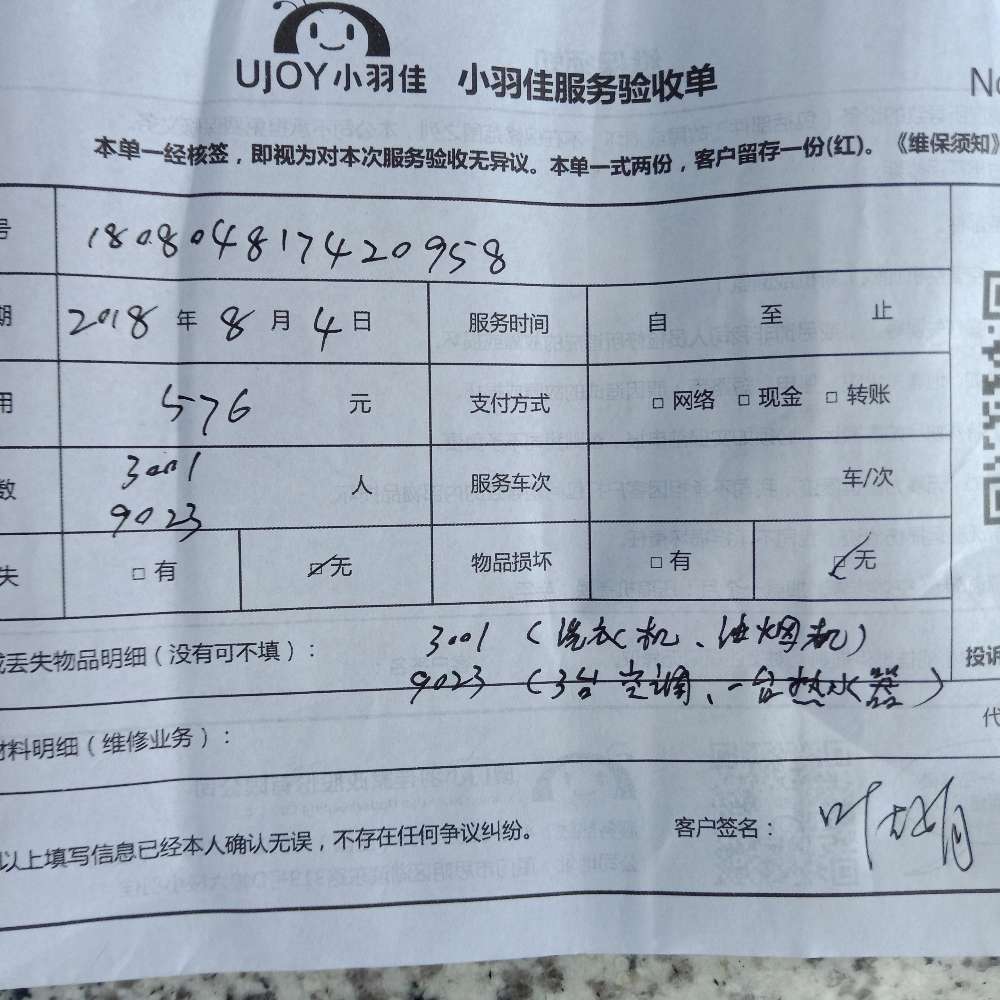 UJOY小羽佳 小羽佳服务验收单 No
本单一经核签，即视为对本次服务验收无异议。本单一式两份，客户留存一份(红)。《维保须知》
号 180804817420958
期 2018 年 8 月 4 日 服务时间 自 至 止
用 576 元 支付方式 □ 网络 □ 现金 □ 转账
数 3001 9023 人 服务车次 车/次
失 □ 有 ☑ 无 物品损坏 □ 有 ☑ 无
或丢失物品明细（没有可不填）： 3001（洗衣机、油烟机）
9023（3台空调、一台热水器）
投诉
材料明细（维修业务）：
代
以上填写信息已经本人确认无误，不存在任何争议纠纷。 客户签名：